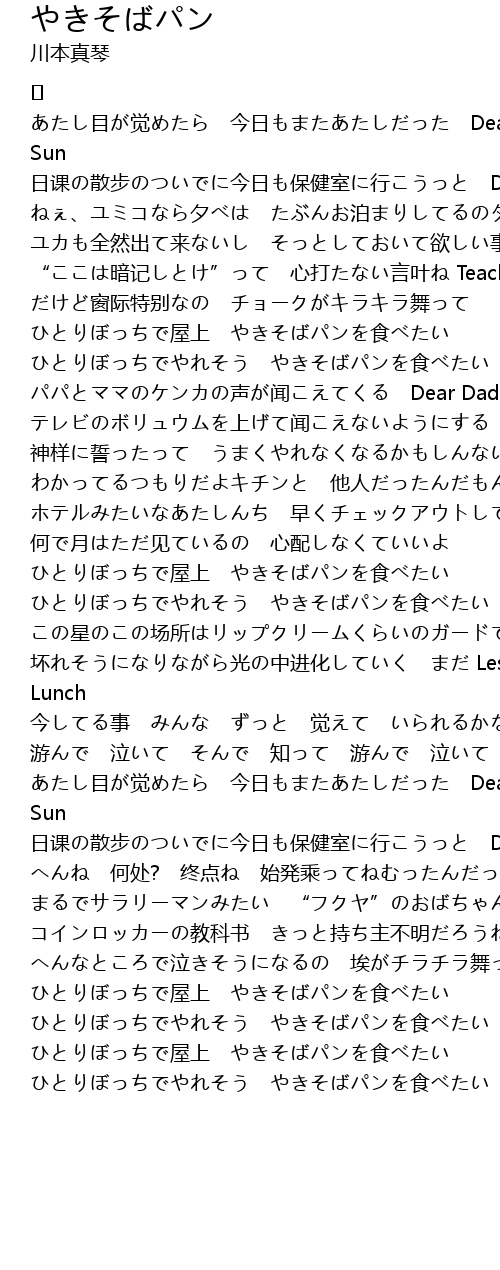 やきそばパン
川本真琴
[]
あたし目が覚めたら　今日もまたあたしだった　Dea
Sun
日课の散歩のついでに今日も保健室に行こうっと　D
ねぇ、ユミコなら夕べは　たぶんお泊まりしてるの
ユカも全然出て来ないし　そっとしておいて欲しい事
“ここは暗记しとけ”って　心打たない言叶ね Teach
だけど窗际特别なの　チョークがキラキラ舞って
ひとりぼっちで屋上　やきそばパンを食べたい
ひとりぼっちでやれそう　やきそばパンを食べたい
パパとママのケンカの声が闻こえてくる　Dear Dad
テレビのボリュウムを上げて闻こえないようにする
神様に誓ったって　うまくやれなくなるかもしんない
わかってるつもりだよキチンと　他人だったんだもん
ホテルみたいなあたしんち　早くチェックアウトして
何で月はただ见ているの　心配しなくていいよ
ひとりぼっちで屋上　やきそばパンを食べたい
ひとりぼっちでやれそう　やきそばパンを食べたい
この星のこの场所はリップクリームくらいのガードで
坏れそうになりながら光の中进化していく　まだ Les
Lunch
今してる事　みんな　ずっと　覚えて　いられるかな
游んで　泣いて　そんで　知って　游んで　泣いて
あたし目が覚めたら　今日もまたあたしだった　Dea
Sun
日课の散歩のついでに今日も保健室に行こうっと　D
へんね　何处?　终点ね　始発乘ってねむったんだっ
まるでサラリーマンみたい　“フクヤ”のおばちゃん
コインロッカーの教科书　きっと持ち主不明だろうね
へんなところで泣きそうになるの　埃がチラチラ舞っ
ひとりぼっちで屋上　やきそばパンを食べたい
ひとりぼっちでやれそう　やきそばパンを食べたい
ひとりぼっちで屋上　やきそばパンを食べたい
ひとりぼっちでやれそう　やきそばパンを食べたい